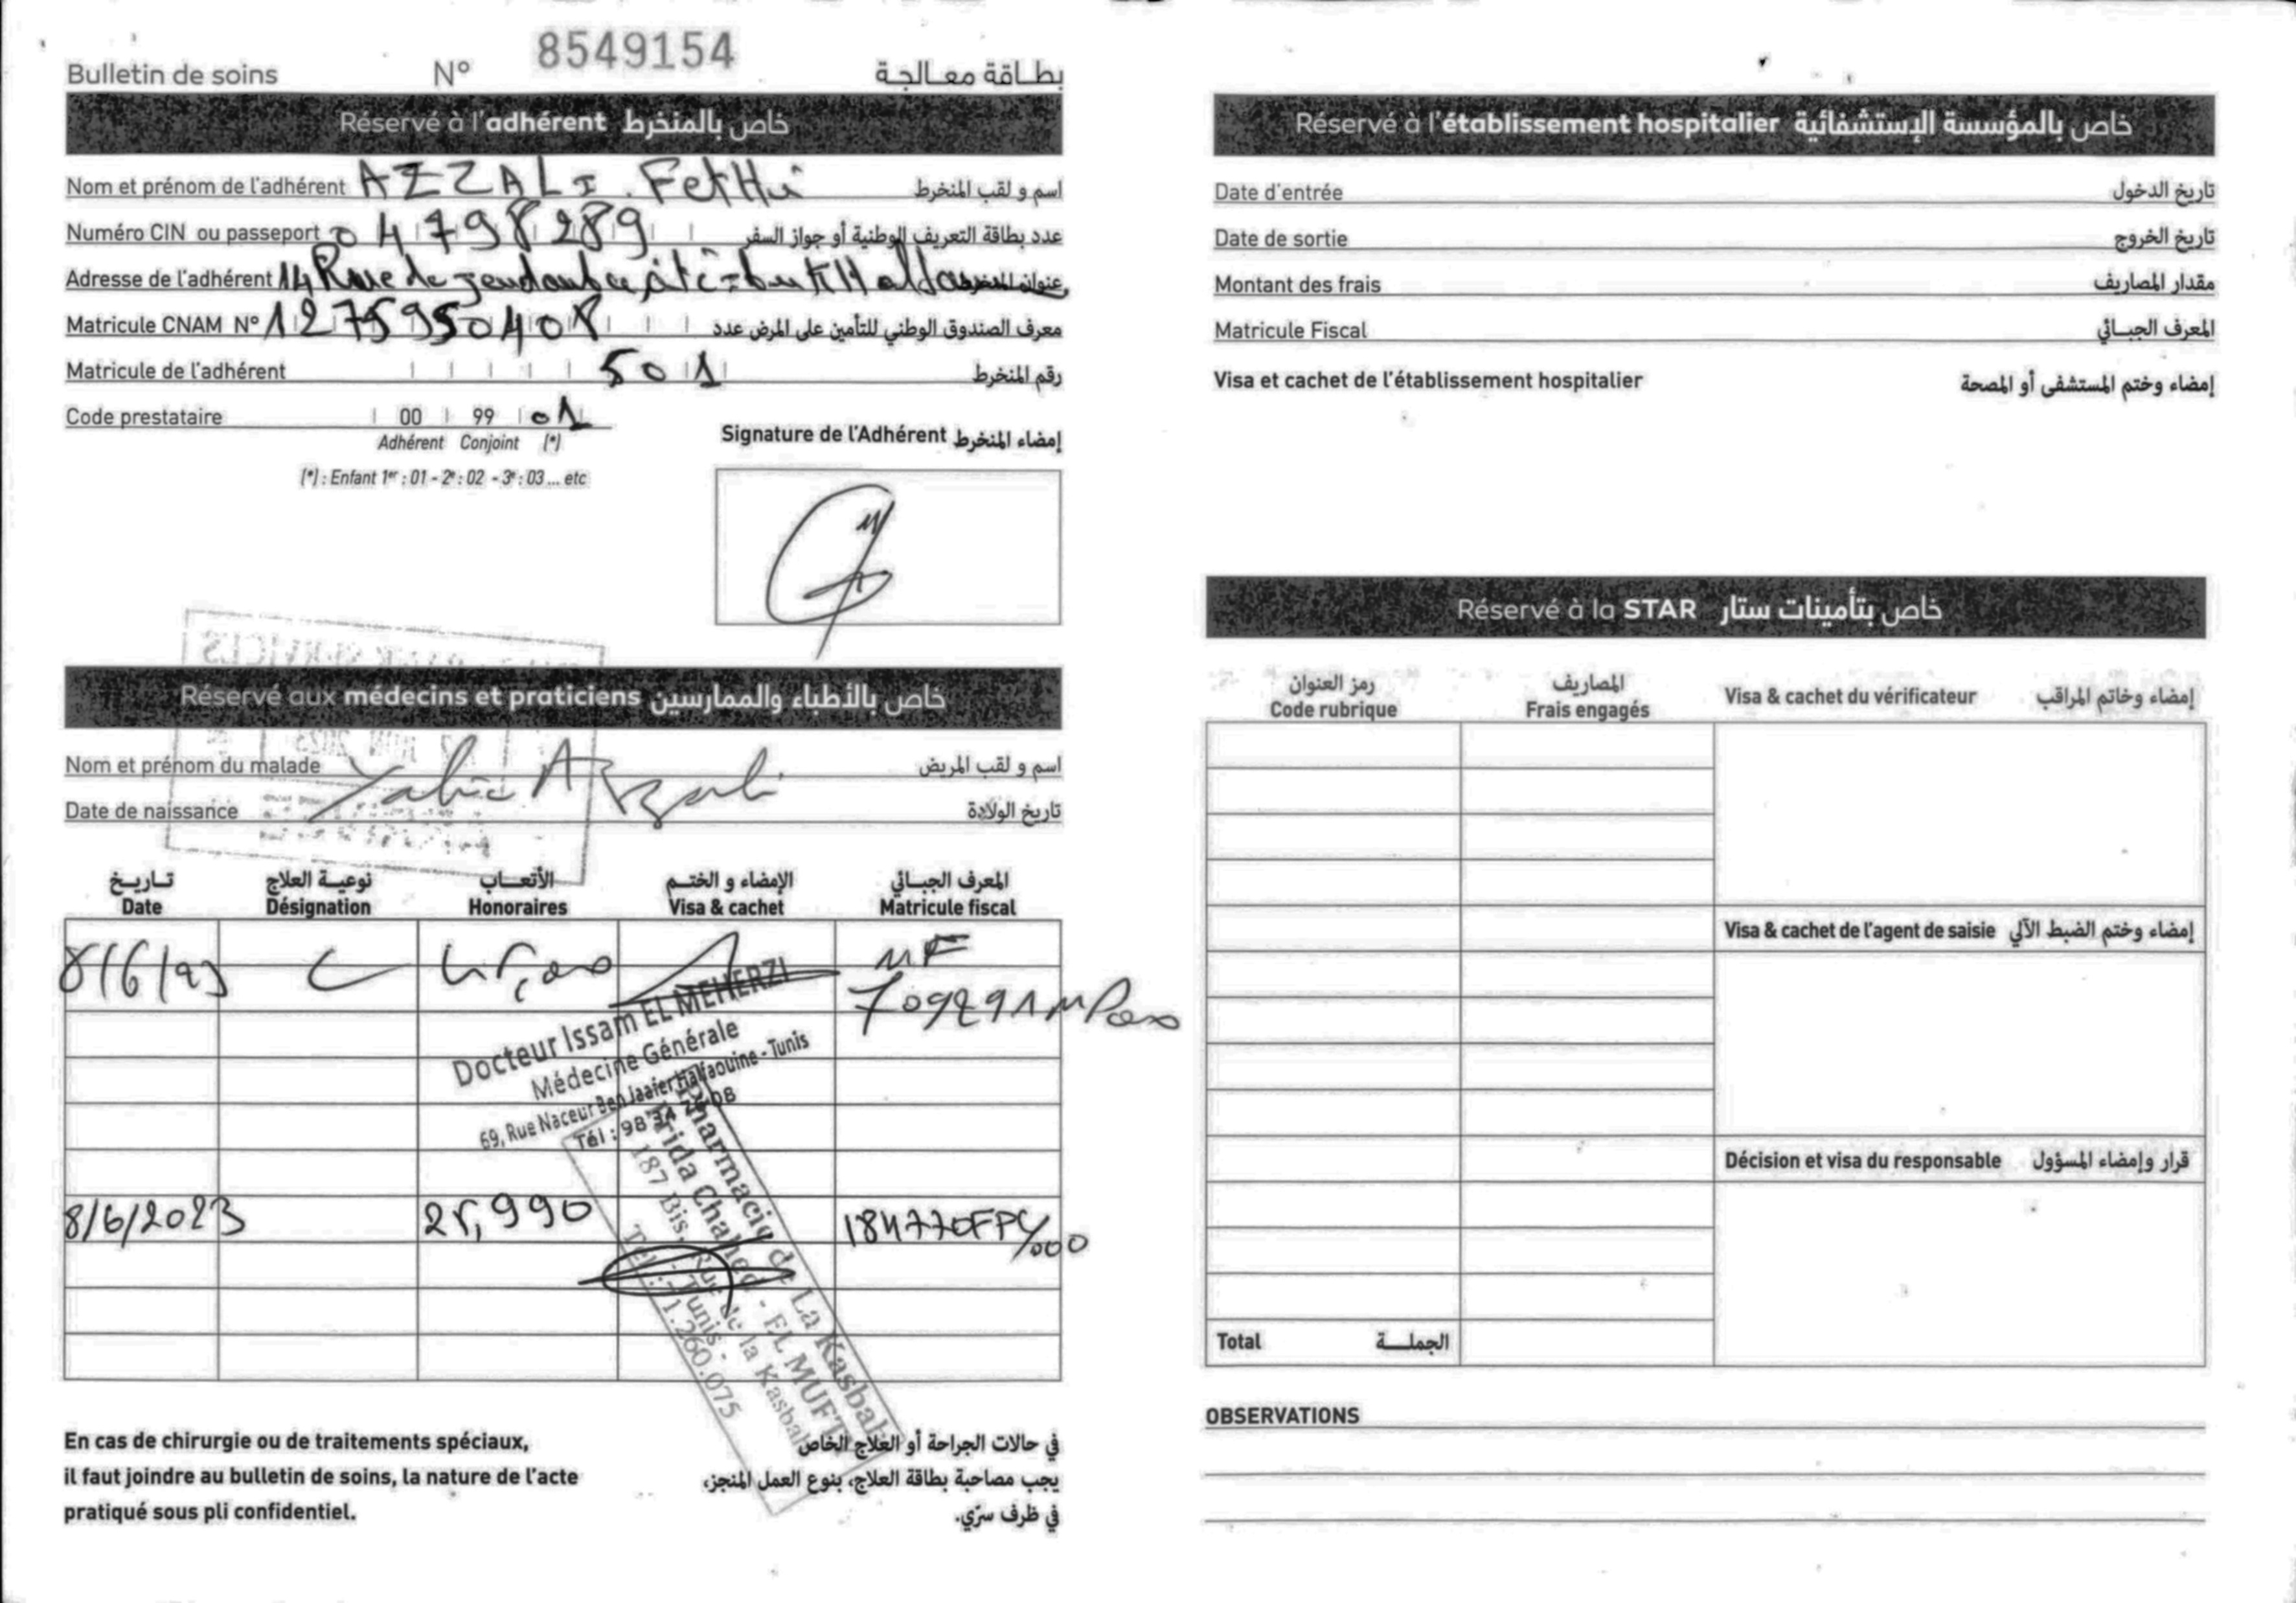 Bulletin de soins N° 8549154 بطاقة معالجة
Réservé à l'adhérent خاص بالمنخرط
Nom et prénom de l'adhérent AZZALI Fethi اسم و لقب المنخرط
Numéro CIN ou passeport 04798289 عدد بطاقة التعريف الوطنية أو جواز السفر
Adresse de l'adhérent 14 Rue de عنوان المنخرط
Matricule CNAM N° 1275950408 معرف الصندوق الوطني للتأمين على المرض عدد
Matricule de l'adhérent 501 رقم المنخرط
Code prestataire 00 99 01
Adhérent Conjoint (*)
(*) : Enfant 1er : 01 - 2e : 02 - 3e : 03 ... etc
Signature de l'Adhérent إمضاء المنخرط
Réservé aux médecins et praticiens خاص بالأطباء والممارسين
Nom et prénom du malade Azzali اسم و لقب المريض
Date de naissance تاريخ الولادة
تاريخ نوعية العلاج الأتعاب الإمضاء و الختم المعرف الجبائي
Date Désignation Honoraires Visa & cachet Matricule fiscal
8/6/23 C MF
Docteur Issam EL MEHERZI
Médecine Générale
69, Rue Naceur Ben Jaafer Halfaouine - Tunis
Tél : 98
8/6/2023 184770FPC/000
Pharmacie de La Kasbah
Frida Chahed - EL MUFTI
187 Bis, Rue de la Kasbah
- Tunis -
Tél : 71.260.075
En cas de chirurgie ou de traitements spéciaux,
il faut joindre au bulletin de soins, la nature de l'acte
pratiqué sous pli confidentiel.
في حالات الجراحة أو العلاج الخاص
يجب مصاحبة بطاقة العلاج، بنوع العمل المنجز،
في ظرف سرّي.
Réservé à l'établissement hospitalier خاص بالمؤسسة الإستشفائية
Date d'entrée تاريخ الدخول
Date de sortie تاريخ الخروج
Montant des frais مقدار المصاريف
Matricule Fiscal المعرف الجبائي
Visa et cachet de l'établissement hospitalier إمضاء وختم المستشفى أو المصحة
Réservé à la STAR خاص بتأمينات ستار
رمز العنوان المصاريف
Code rubrique Frais engagés Visa & cachet du vérificateur إمضاء وخاتم المراقب
Visa & cachet de l'agent de saisie إمضاء وختم الضبط الآلي
Décision et visa du responsable قرار وإمضاء المسؤول
Total الجملة
OBSERVATIONS